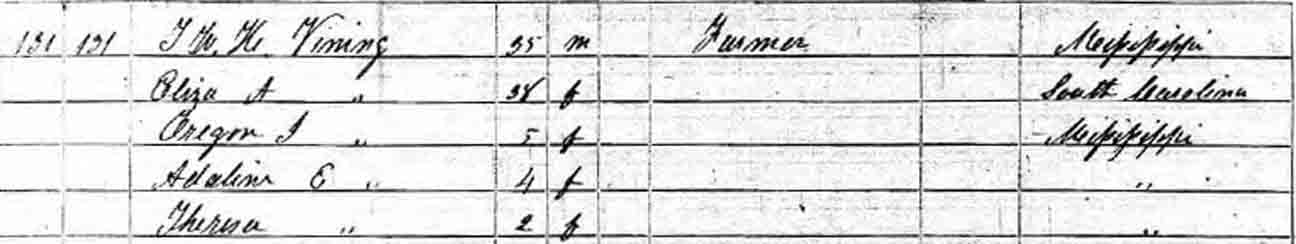 131 131 J W. H. Vining 35 m Farmer Mississippi
Eliza A " 38 f South Carolina
Oregon J " 5 f Mississippi
Adaline E " 4 f "
Theresa " 2 f "